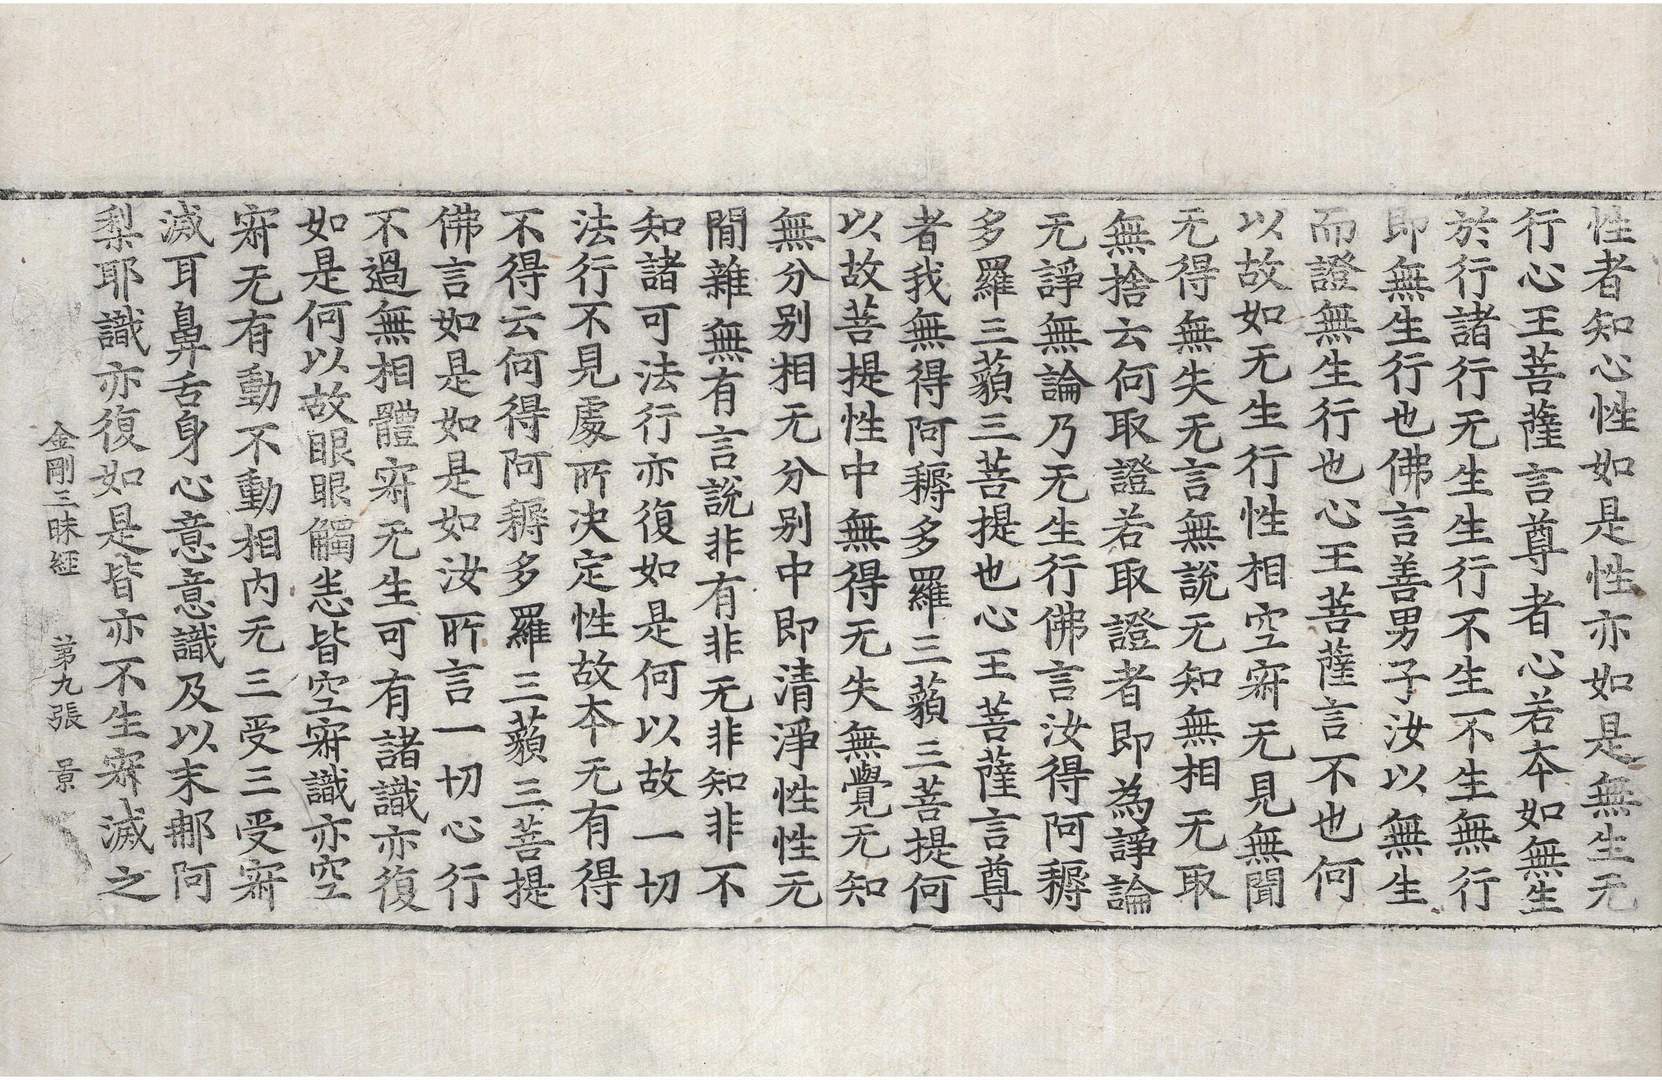 性者知心性如是性亦如是無生无
行心王菩薩言尊者心若夲如無生
於行諸行无生生行不生不生無行
即無生行也佛言善男子汝以無生
而證無生行也心王菩薩言不也何
以故如无生行性相空𡧯无見無聞
无得無失无言無說无知無相无取
無捨云何取證若取證者即為諍論
无諍無論乃无生行佛言汝得阿耨
多羅三藐三菩提也心王菩薩言尊
者我無得阿耨多羅三藐三菩提何
以故菩提性中無得无失無覺无知
無分别相无分别中即清淨性性无
閒雜無有言說非有非无非知非不
知諸可法行亦復如是何以故一切
法行不見處所决定性故夲无有得
不得云何得阿耨多羅三藐三菩提
佛言如是如是如汝所言一切心行
不過無相體𡧯无生可有諸識亦復
如是何以故眼眼觸悉皆空𡧯識亦空
𡧯无有動不動相内无三受三受𡧯
滅耳鼻舌身心意意識及以末那阿
梨耶識亦復如是皆亦不生𡧯滅之
金剛三昧經　第九張　景